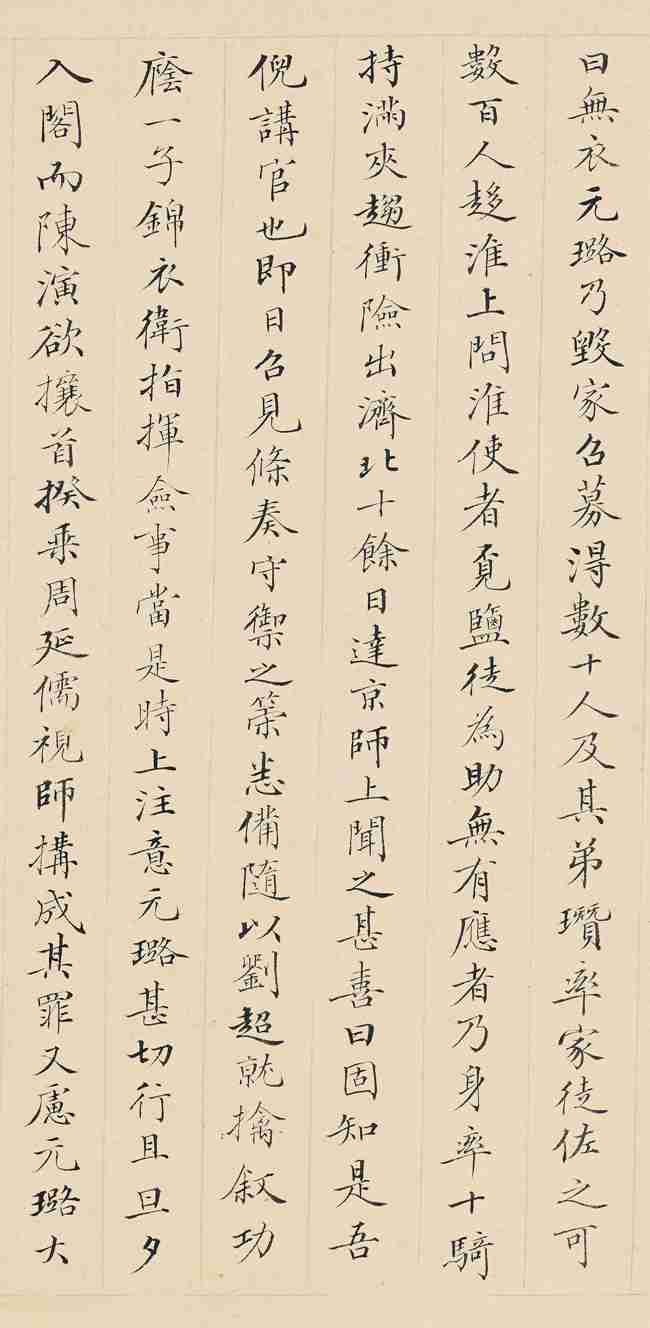 曰無衣元璐乃毀家召募得數十人及其弟瓚率家徒佐之可
數百人趍淮上問淮使者覔鹽徒為助無有應者乃身率十騎
持滿夾趨衝險出濟北十餘日達京師上聞之甚喜曰固知是吾
倪講官也即日召見條奏守禦之策悉備隨以劉超就擒敘功
廕一子錦衣衛指揮僉事當是時上注意元璐甚切行且旦夕
入閣而陳演欲攘首揆乘周延儒視師搆成其罪又慮元璐大